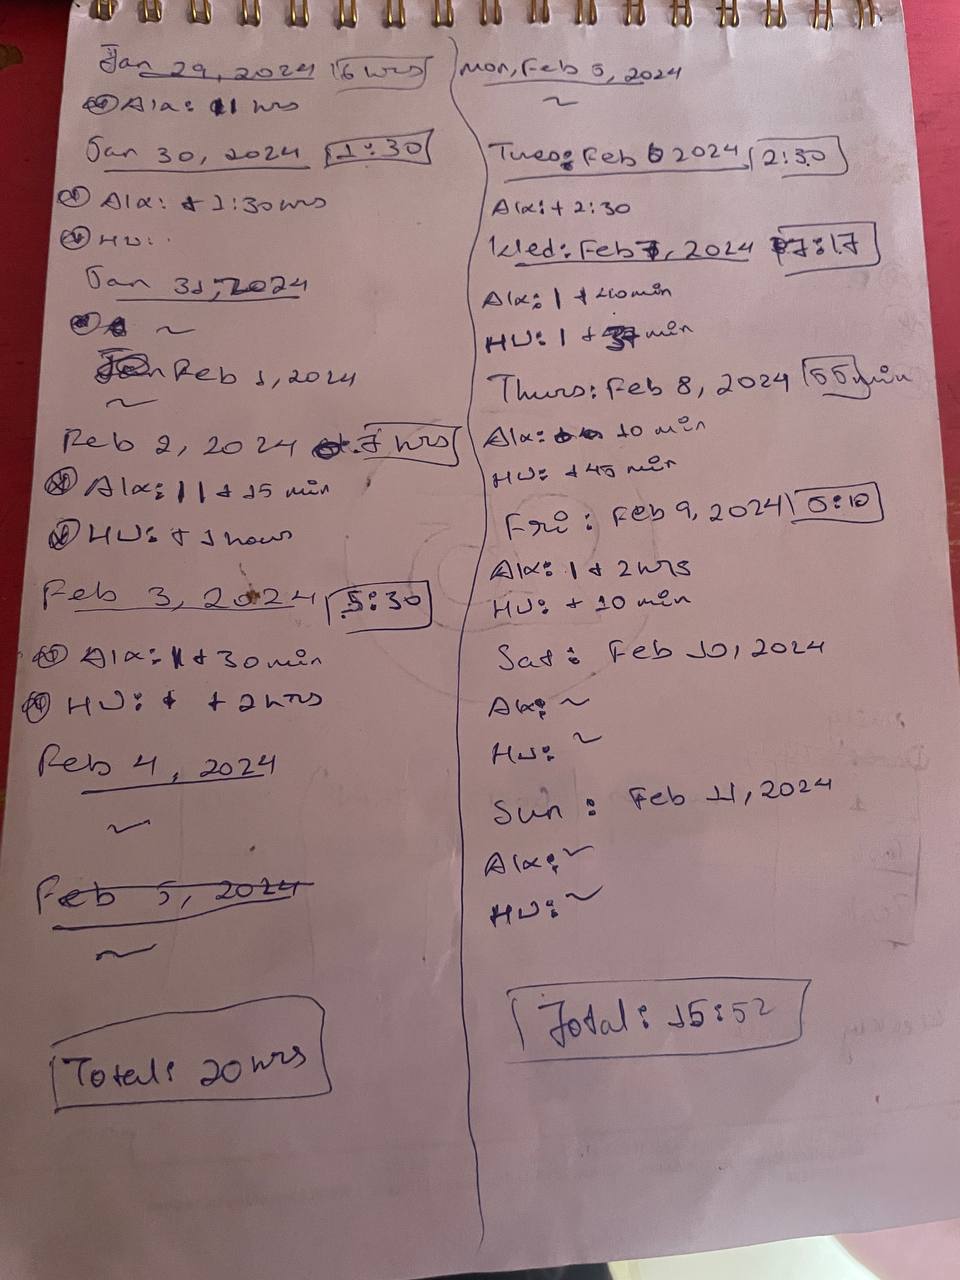 Jan 29, 2024 6 hrs
Alα: 11 hrs
Jan 30, 2024 1:30
Alα: + 1:30 hrs
HU:
Jan 31, 2024
~
Feb 1, 2024
~
Feb 2, 2024 7 hrs
Alα: 11 + 15 min
HU: + 1 hour
Feb 3, 2024 5:30
Alα: 1 + 30 min
HU: + + 2 hrs
Feb 4, 2024
~
Feb 5, 2024
~
Total: 20 hrs
Mon, Feb 5, 2024
~
Tues: Feb 6 2024 2:30
Alα: + 2:30
Wed: Feb 7, 2024 7:17
Alα: 1 + 40 min
HU: 1 + 37 min
Thurs: Feb 8, 2024 55 min
Alα: 10 min
HU: + 45 min
Fri: Feb 9, 2024 5:10
Alα: 1 + 2 hrs
HU: + 10 min
Sat: Feb 10, 2024
Alα: ~
HU: ~
Sun: Feb 11, 2024
Alα: ~
HU: ~
Total: 15:52